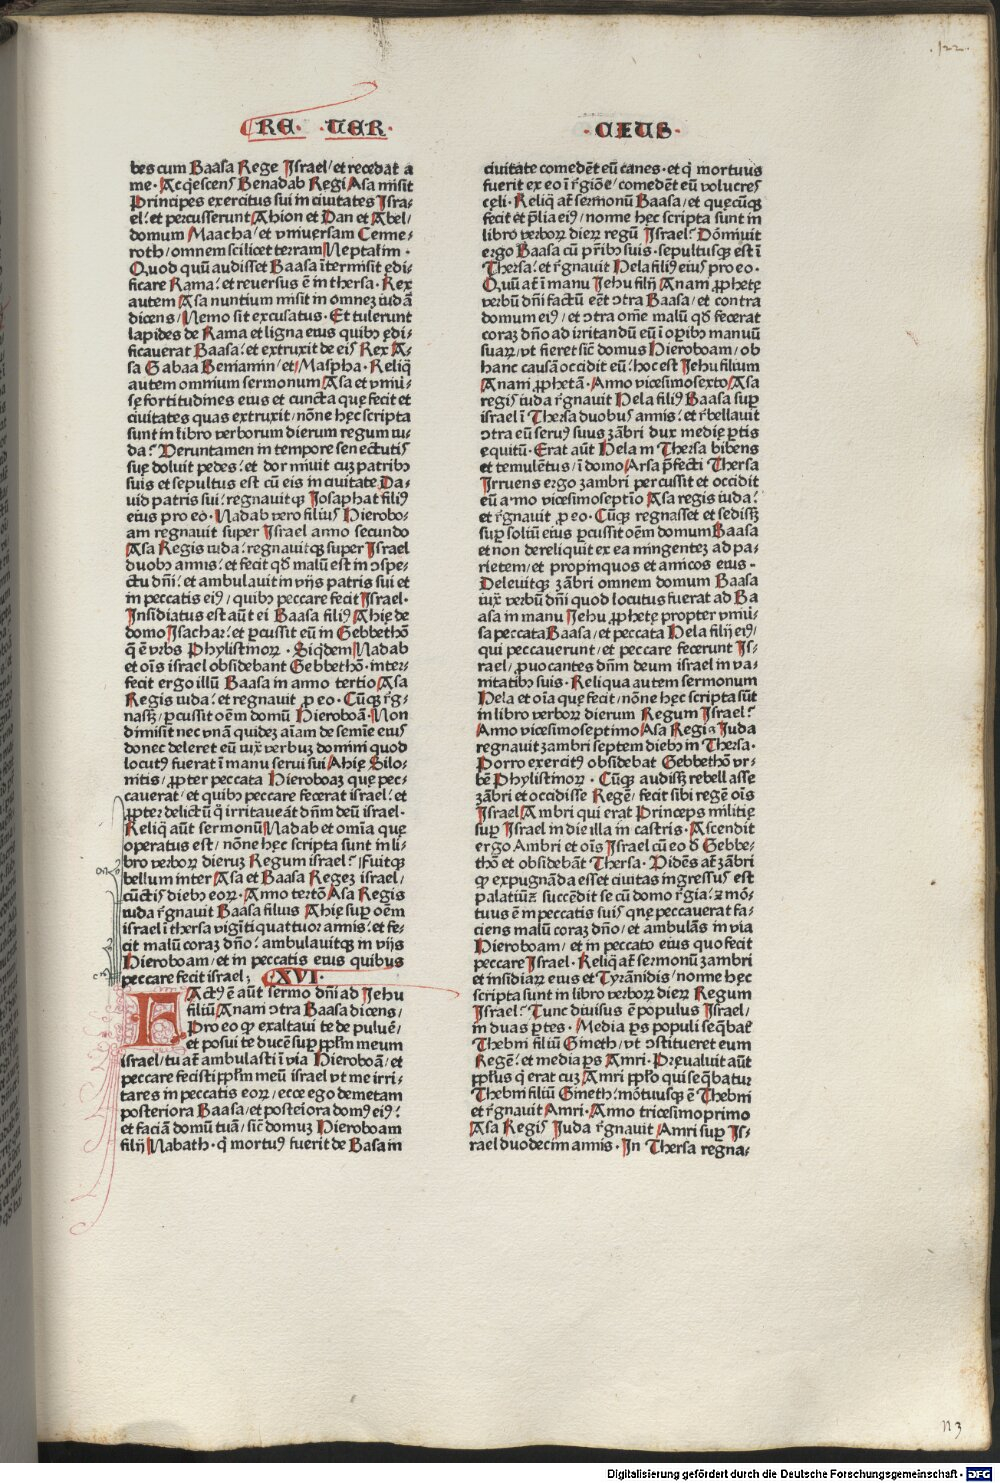 .122.
RE· ·TER·
·CIUS·
bes cum Baasa Rege Israel/ et recedat a
me· Acq̇escens Benadab Regi Asa misit
Principes exercitus sui in ciuitates Isra-
el: et percusserunt Ahion et Dan et Abel/
domum Maacha/ et vniuersam Cenne-
roth/ omnem scilicet terram Neptalim ·
Quod quū audisset Baasa ītermisit ędi-
ficare Rama: et reuersus ē in thersa· Rex
autem Asa nuntium misit in omneꝫ iudā
dicens/ Nemo sit excusatus· Et tulerunt
lapides de Rama et ligna eius quibꝯ ędi-
ficauerat Baasa: et extruxit de eis Rex A-
sa Gabaa Beniamin/ et Maspha· Reliq̄
autem omnium sermonum Asa et vniū-
sę fortitudines eius et cuncta quę fecit et
ciuitates quas extruxit/ nōne hęc scripta
sunt in libro verborum dierum regum iu-
da? Veruntamen in tempore senectutis
suę doluit pedes: et dormiuit cuꝫ patribꝯ
suis et sepultus est cū eis in ciuitate Da-
uid patris sui: regnauitqꝫ Iosaphat filiꝰ
eius pro eo· Nadab vero filius Hierobo-
am regnauit super Israel anno secundo
Asa Regis iuda: regnauitqꝫ super Israel
duobꝯ annis: et fecit qđ malū est in ↄspe-
ctu dn̄i: et ambulauit in vijs patris sui et
in peccatis eiꝰ/ quibꝯ peccare fecit Israel·
Insidiatus est aūt ei Baasa filiꝰ Ahię de
domo Isachar: et ꝑcussit eū in Gebbethō
q̄ ē vrbs Phylistinoꝝ · Siqđem Nadab
et ois israel obsidebant Gebbethō· inter-
fecit ergo illū Baasa in anno tertio Asa
Regis iuda: et regnauit ꝓ eo· Cūqꝫ r̄g-
nassꝫ/ ꝑcussit oēm domū Hieroboā· Non
dimisit nec vnā quideꝫ aīam de semīe eius
donec deleret eū iux̄ verbuꝫ domini quod
locutꝰ fuerat ī manu serui sui Ahię Silo-
nitis/ ꝓpter peccata Hieroboaꝫ quę pec-
cauerat/ et quibꝯ peccare fecerat israel: et
ꝓpter delictū q̇ irritaueāt dn̄m deū israel·
Reliq̄ aūt sermonū Nadab et omīa quę
operatus est/ nōne hęc scripta sunt in li-
bro verboꝝ dieruꝫ Regum israel? Fuitqꝫ
bellum inter Asa et Baasa Regeꝫ israel/
cūctis diebꝯ eoꝝ· Anno tertō Asa Regis
iuda r̄gnauit Baasa filius Ahię suꝑ oēm
israel ī thersa vigīti quattuor annis: et fe-
cit malū coraꝫ dn̄o: ambulauitqꝫ in vijs
Hieroboam/ et in peccatis eius quibus
peccare fecit israel; XVI·
FActꝰ ē aūt sermo dn̄i ad Iehu
filiū Anani ↄtra Baasa dicens/
Pro eo qꝫ exaltaui te de puluē/
et posui te ducē suꝑ ppl̄m meum
israel/ tu at̄ ambulasti ī via Hieroboā/ et
peccare fecisti ppl̄m meū israel vt me irri-
tares in peccatis eoꝝ/ ecce ego demetam
posteriora Baasa/ et posteiora domꝰ eiꝰ:
et faciā domū tuā/ sic̄ domuꝫ Hieroboam
filij Nabath· q̇ mortuꝰ fuerit de Basa in
ciuitate comedēt eū canes· et q̇ mortuus
fuerit ex eo ī r̄giōe/ comedēt eū volucres
cęli· Reliq̄ at̄ sermonū Baasa/ et quęcūqꝫ
fecit et p̄lia eiꝰ/ nonne hęc scripta sunt in
libro verboꝝ dieꝝ regū Israel? Dōmiuit
ergo Baasa cū pr̄ibꝯ suis· sepultusqꝫ est ī
Thersa: et r̄gnauit Hela filiꝰ eius pro eo·
Quū at̄ ī manu Iehu filij Anani ꝓphetę
verbū dn̄i factū eēt ↄtra Baasa/ et contra
domum eiꝰ/ et ↄtra om̄e malū qđ fecerat
coraꝫ dn̄o ad irritandū eū ī oꝑibꝯ manuū
suaꝝ/ vt fieret sic̄ domus Hieroboam/ ob
hanc causā occidit eū: hoc est Iehu filium
Anani ꝓphetā· Anno vicesimosexto Asa
regis iuda r̄gnauit Hela filiꝰ Baasa suꝑ
israel ī Thersa duobus annis: et r̄bellauit
ↄtra eū seruꝰ suus zābri dux medię ꝑtis
equitū· Erat aūt Hela in Thersa bibens
et temulētus/ ī domo Arsa p̄fecti Thersa
Irruens ergo zambri percussit et occidit
eū anno vicesimoseptīo Asa regis iuda:
et r̄gnauit ꝓ eo· Cūqꝫ regnasset et sedissꝫ
suꝑ soliū eius ꝑcussit oēm domum Baasa
et non dereliquit ex ea mingenteꝫ ad pa-
rietem/ et propinquos et amicos eius·
Deleuitqꝫ zābri omnem domum Baasa
iux̄ verbū dn̄i quod locutus fuerat ad Ba
asa in manu Iehu ꝓphetę propter vniū-
sa peccata Baasa/ et peccata Hela filij eiꝰ/
qui peccauerunt/ et peccare fecerunt Is-
rael/ ꝓuocantes dn̄m deum israel in va-
nitatibꝯ suis· Reliqua autem sermonum
Hela et oīa quę fecit/ nōne hęc scripta sūt
in libro verboꝝ dierum Regum Israel?
Anno vicesimoseptimo Asa Regis Iuda
regnauit zambri septem diebꝯ in Thersa·
Porro exercitꝰ obsidebat Gebbethō vr-
bē Phylistinoꝝ · Cūqꝫ audissꝫ rebellasse
zābri et occidisse Regē/ fecit sibi regē oīs
Israel Ambri qui erat Princeps militię
suꝑ Israel in die illa in castris· Ascendit
ergo Ambri et oīs Israel cū eo đ Gebbe-
thō et obsidebāt Thersa· Vidēs at̄ zābri
qꝫ expugnāda esset ciuitas ingressus est
palatiūꝫ succēdit se cū domo r̄gia: ⁊ mō-
tuus ē in peccatis suis quę peccauerat fa-
ciens malū coraꝫ dn̄o/ et ambulās in via
Hieroboam/ et in peccato eius quo fecit
peccare Israel· Reliq̄ at̄ sermonū zambri
et insidiaꝝ eius et Tyrānidis/ nonne hęc
scripta sunt in libro verboꝝ dieꝝ Regum
Israel? Tunc diuisus ē populus Israel/
in duas ꝑtes· Media ꝑs populi seq̄bat̄
Thebni filiū Gineth/ vt ↄstitueret eum
Regē: et media ꝑs Amri· Pręualuit aūt
ppl̄us q̇ erat cuꝫ Amri ppl̄o qui seq̄batur
Thebni filiū Gineth: mōtuusqꝫ ē Thebni
et r̄gnauit Amri· Anno tricesimoprimo
Asa Regis Iuda r̄gnauit Amri suꝑ Is-
rael duodecim annis· In Thersa regna-
n3
Digitalisierung gefördert durch die Deutsche Forschungsgemeinschaft - DFG